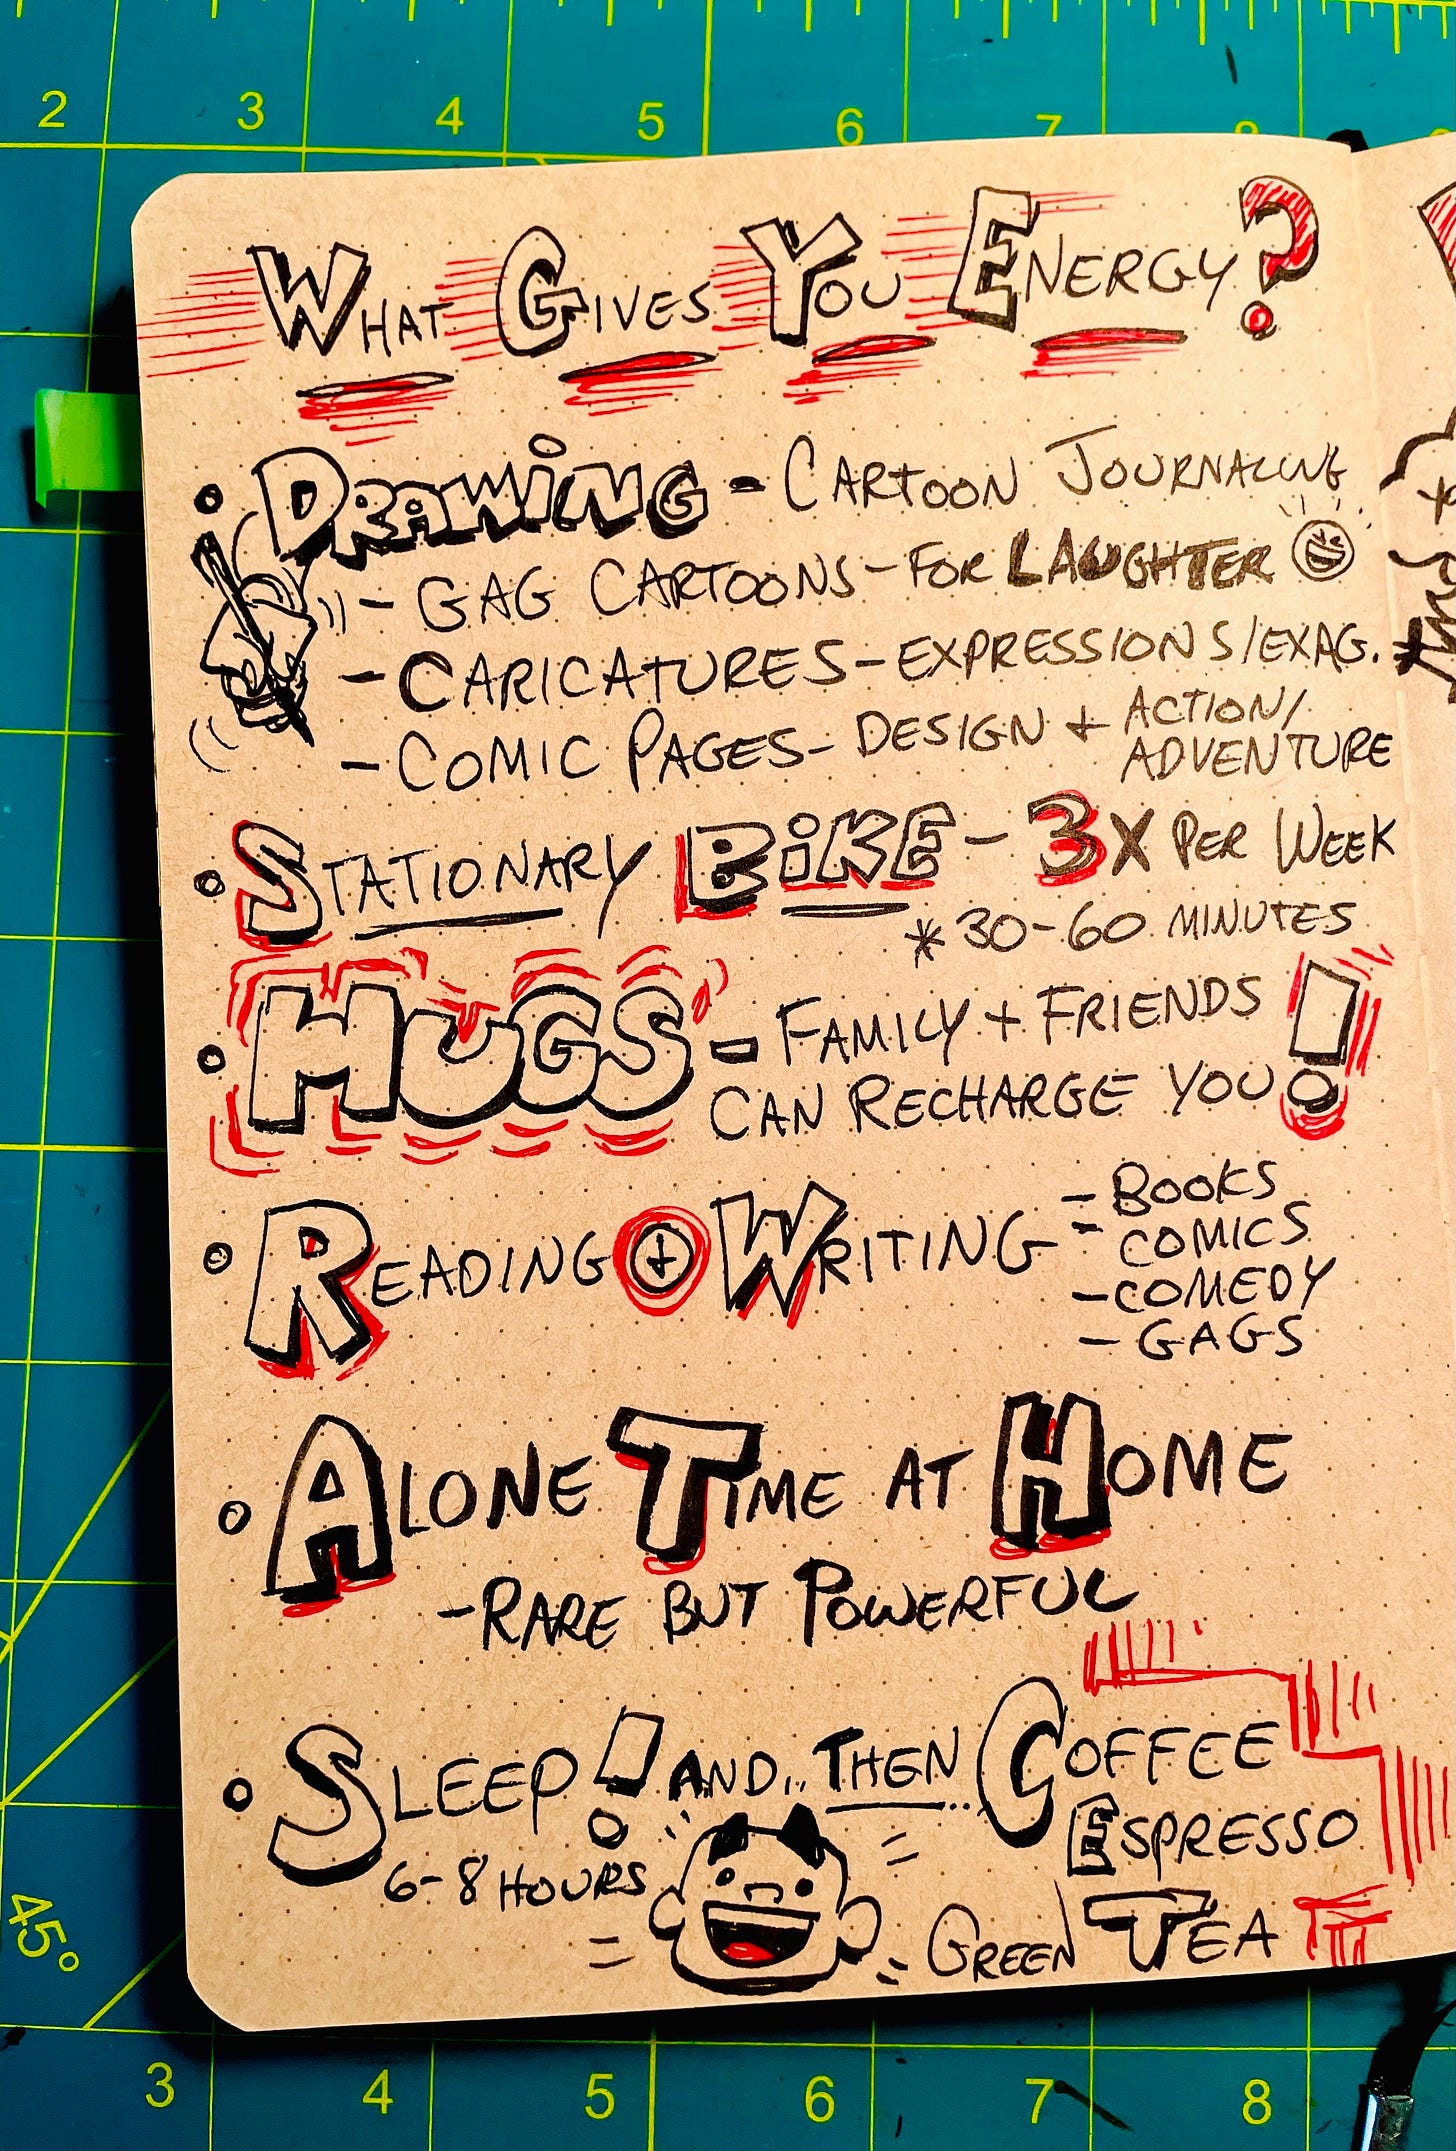 2 3 4 5 6 7 8
What Gives You Energy?
• Drawing - Cartoon Journaling
- Gag Cartoons - For Laughter
- Caricatures - Expressions/Exag.
- Comic Pages - Design + Action/
Adventure
• Stationary Bike - 3x Per Week
* 30-60 Minutes
• Hugs - Family + Friends
Can Recharge You!
• Reading + Writing - Books
- Comics
- Comedy
- Gags
• Alone Time at Home
- Rare But Powerful
• Sleep! And... Then... Coffee
Espresso
6-8 Hours
Green Tea
45°
3 4 5 6 7 8